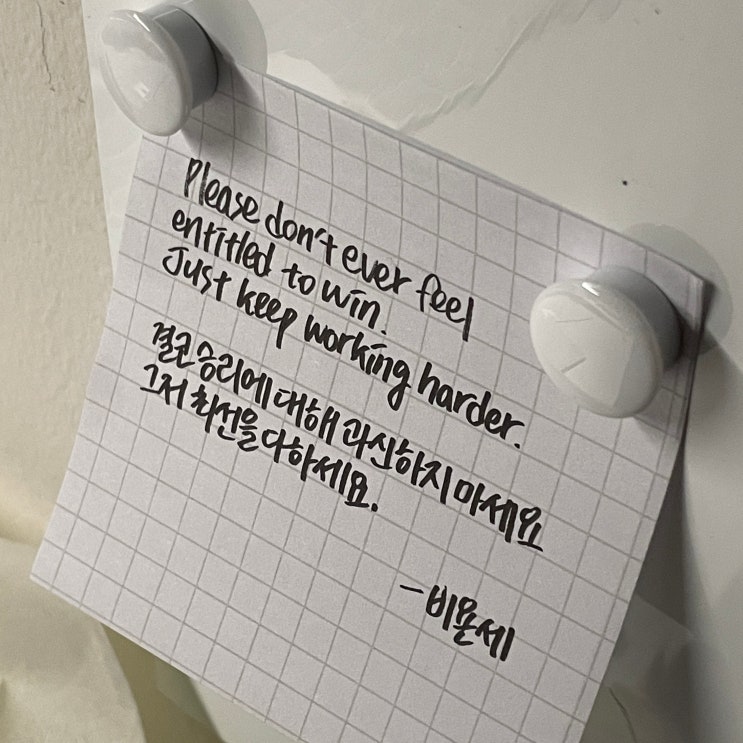 Please don't ever feel
entitled to win.
Just keep working harder.
결코 승리에 대해 과신하지 마세요
그저 최선을 다하세요.
-비욘세